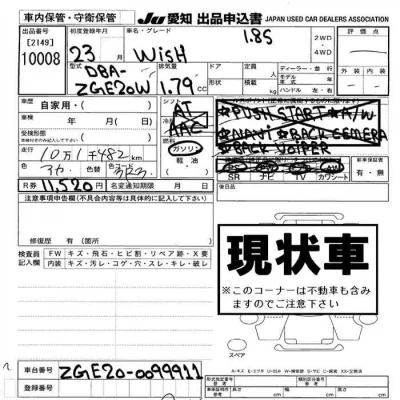 車内保管・守衛保管 JU 愛知 出品申込書 JAPAN USED CAR DEALERS ASSOCIATION
出品番号 初度登録年月 車名・グレード 1.8S 2WD・4WD 評価点
[2149]
10008 23 月 WISH
型式 排気量 ドア 定員 ディーラー・並行
DBA-ZGE20W 1.79 cc 形状 積載 kg モデル年式 年
ハンドル 左・右
車歴 自家用・ シフト AT
車検 年 月(日) 冷房 AAC ★PUSH START ★A/W
★NAVI ★BACK CEMERA
★BACK VOIPER
受検形態
走行 10万1千482 km ガソリン・軽油
色 色替 色コード SR ナビ TV カワシート 新車保証書 有・無
R券 11,520 円 名変通知期限 月 日 後日品
注意事項申告欄(不具合内容等は具体的に記入して下さい)
修復歴 有(箇所
現状車
※このコーナーは不動車も含みますのでご注意下さい
検査員記入欄 FW キズ・飛石・ヒビ割・リペア跡・X要
内装 キズ・汚レ・コゲ・穴・スレ・キレ・破レ
スペア
車台番号 ZGE20-0099911
登録番号 型式指定番号 類別区分番号
長さ cm 幅 cm 高さ cm